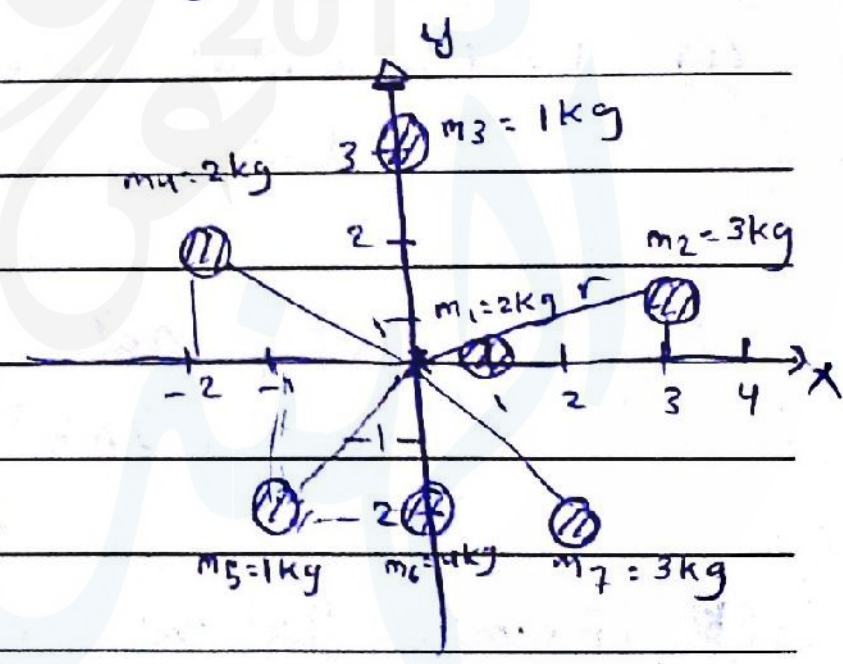 201
y
3 m3 = 1kg
m4 = 2kg
2 m2 = 3kg
1 m1 = 2kg r
-2 -1 1 2 3 4 X
-1
-2
m5 = 1kg m6 = 4kg m7 = 3kg